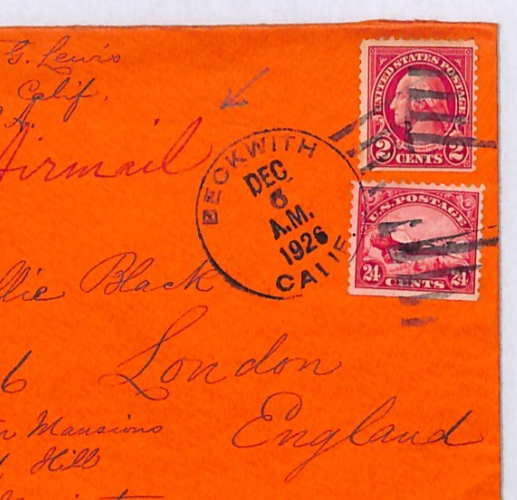 G. Lewis
Calif.
Airmail
BECKWITH
DEC
A.M.
1926
CALIF.
UNITED STATES POSTAGE
2 CENTS 2
U.S. POSTAGE
24 CENTS 24
Black
London
England
Mansions
Hill